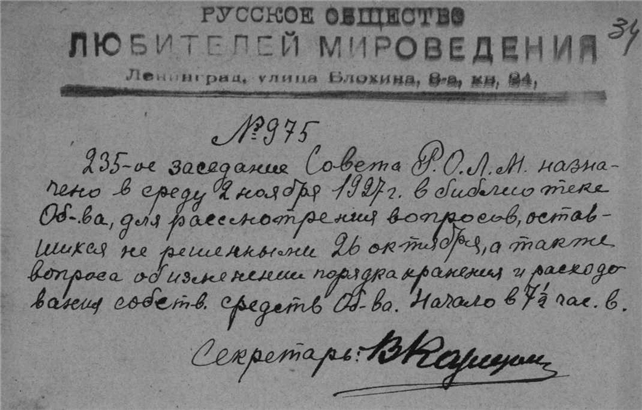 34
РУССКОЕ ОБЩЕСТВО
ЛЮБИТЕЛЕЙ МИРОВЕДЕНИЯ
Ленинград, улица Блохина, 8-а, кв. 24,
№ 975
235-ое заседание Совета Р.О.Л.М. назна-
чено в среду 2 ноября 1927 г. в библиотеке
Об-ва, для рассмотрения вопросов, остав-
шихся не решенными 26 октября, а также
вопроса об изменении порядка хранения и расходо
вания собств. средств Об-ва. Начало в 7½ час. в.
Секретарь: